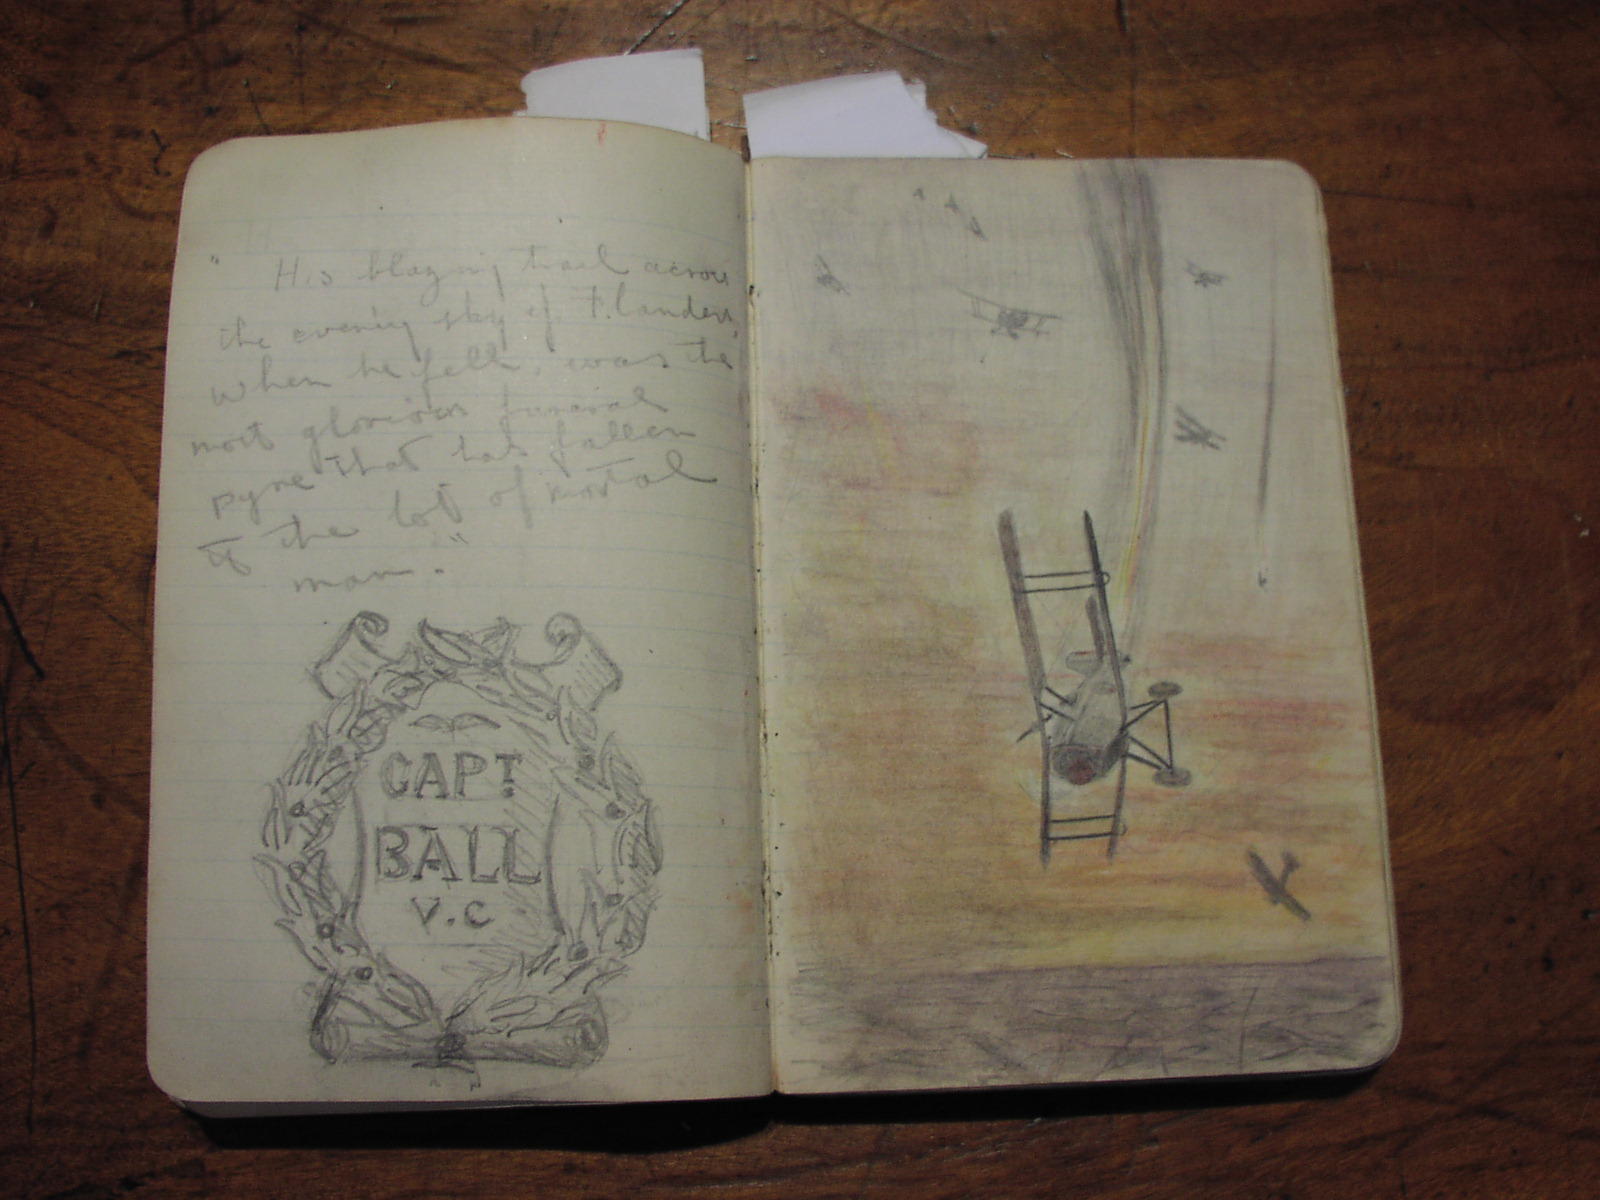 " His blazing trail across
the evening sky of Flanders,
when he fell, was the
most glorious funeral
pyre that has fallen
to the lot of mortal
man. "
CAPT
BALL
V.C